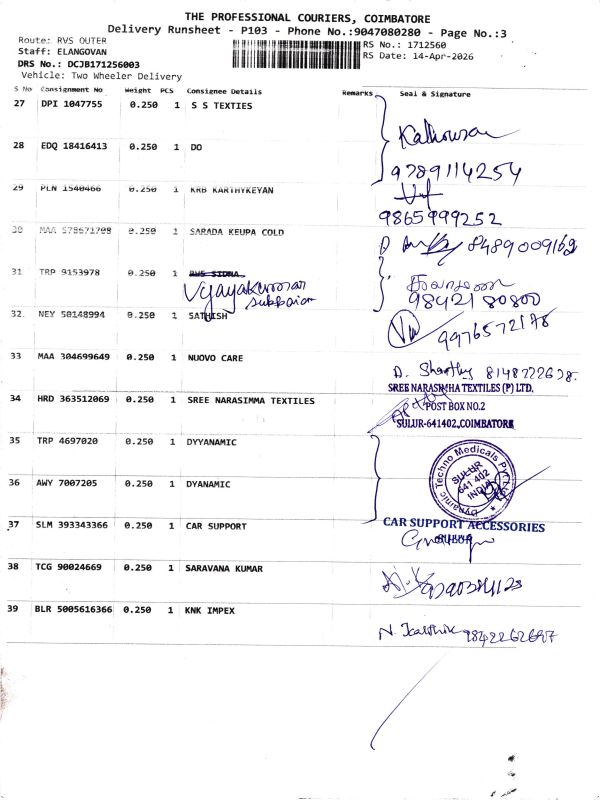 THE PROFESSIONAL COURIERS, COIMBATORE
Delivery Runsheet - P103 - Phone No.:9047080280 - Page No.:3
Route: RVS OUTER
RS No.: 1712560
Staff: ELANGOVAN
RS Date: 14-Apr-2026
DRS No.: DCJB171256003
Vehicle: Two Wheeler Delivery
S No Consignment No Weight PCS Consignee Details Remarks Seal & Signature
27 DPI 1047755 0.250 1 S S TEXTIES
28 EDQ 18416413 0.250 1 DO
9789114254
29 PLN 1540466 0.250 1 KRB KARTHYKEYAN
9865999252
30 MAA 578671708 0.250 1 SARADA KEUPA COLD
8489009162
31 TRP 9153978 0.250 1
Vijayakumar
9842180800
32. NEY 50148994 0.250 1 SATHISH
9976572178
33 MAA 304699649 0.250 1 NUOVO CARE
D. 8148722628.
SREE NARASIMHA TEXTILES (P) LTD.
34 HRD 363512069 0.250 1 SREE NARASIMMA TEXTILES
POST BOX NO.2
SULUR-641402,COIMBATORE
35 TRP 4697020 0.250 1 DYYANAMIC
Dynamic Techno Medicals Pvt
SULUR
641 402
INDIA
36 AWY 7007205 0.250 1 DYANAMIC
37 SLM 393343366 0.250 1 CAR SUPPORT
CAR SUPPORT ACCESSORIES
38 TCG 90024669 0.250 1 SARAVANA KUMAR
39 BLR 5005616366 0.250 1 KNK IMPEX
N. Karthik 9842262697